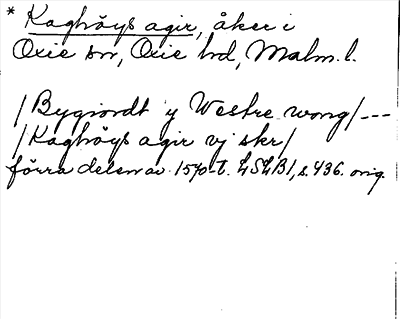 * Kaghöys agir, åker i
Oxie sn, Oxie hd, Malm. l.
/Bygiordt y Westre wong/---
/Kaghöys agir vj skr/
förra delen av 1570-t. LSLB1, s. 436. orig.